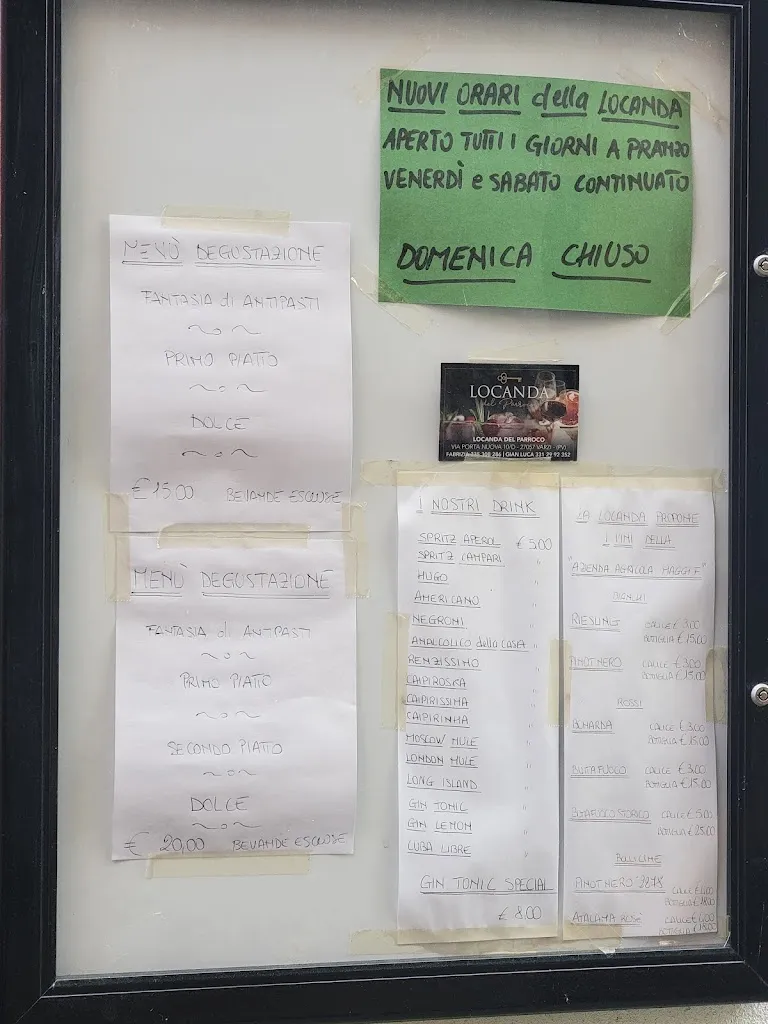 NUOVI ORARI della LOCANDA
APERTO TUTTI I GIORNI A PRANZO
VENERDÌ e SABATO CONTINUATO
DOMENICA CHIUSO
MENÙ DEGUSTAZIONE
FANTASIA di ANTIPASTI
PRIMO PIATTO
DOLCE
€ 15.00 BEVANDE ESCLUSE
MENÙ DEGUSTAZIONE
FANTASIA di ANTIPASTI
PRIMO PIATTO
SECONDO PIATTO
DOLCE
€ 20,00 BEVANDE ESCLUSE
LOCANDA
del Parroco
LOCANDA DEL PARROCO
VIA PORTA NUOVA 10/D - 27057 VARZI (PV)
FABRIZIA | GIAN LUCA 331 29 92 352
I NOSTRI DRINK
SPRITZ APEROL € 5.00
SPRITZ CAMPARI "
HUGO "
AMERICANO "
NEGRONI "
ANALCOLICO della CASA "
RENZISSIMO "
CAIPIROSKA "
CAIPIRISSIMA "
CAIPIRINHA "
MOSCOW MULE "
LONDON MULE "
LONG ISLAND "
GIN TONIC "
GIN LEMON "
CUBA LIBRE "
GIN TONIC SPECIAL
€ 8.00
LA LOCANDA PROPONE
I VINI DELLA
AZIENDA AGRICOLA
BIANCHI
RIESLING CALICE € 3.00
BOTTIGLIA € 15.00
PINOT NERO CALICE € 3.00
BOTTIGLIA € 15.00
ROSSI
BONARDA CALICE € 3.00
BOTTIGLIA € 15.00
BUTTAFUOCO CALICE € 3.00
BOTTIGLIA € 15.00
BUTTAFUOCO STORICO CALICE € 5.00
BOTTIGLIA € 25.00
BOLLICINE
PINOT NERO CALICE
BOTTIGLIA
ROSÉ CALICE
BOTTIGLIA